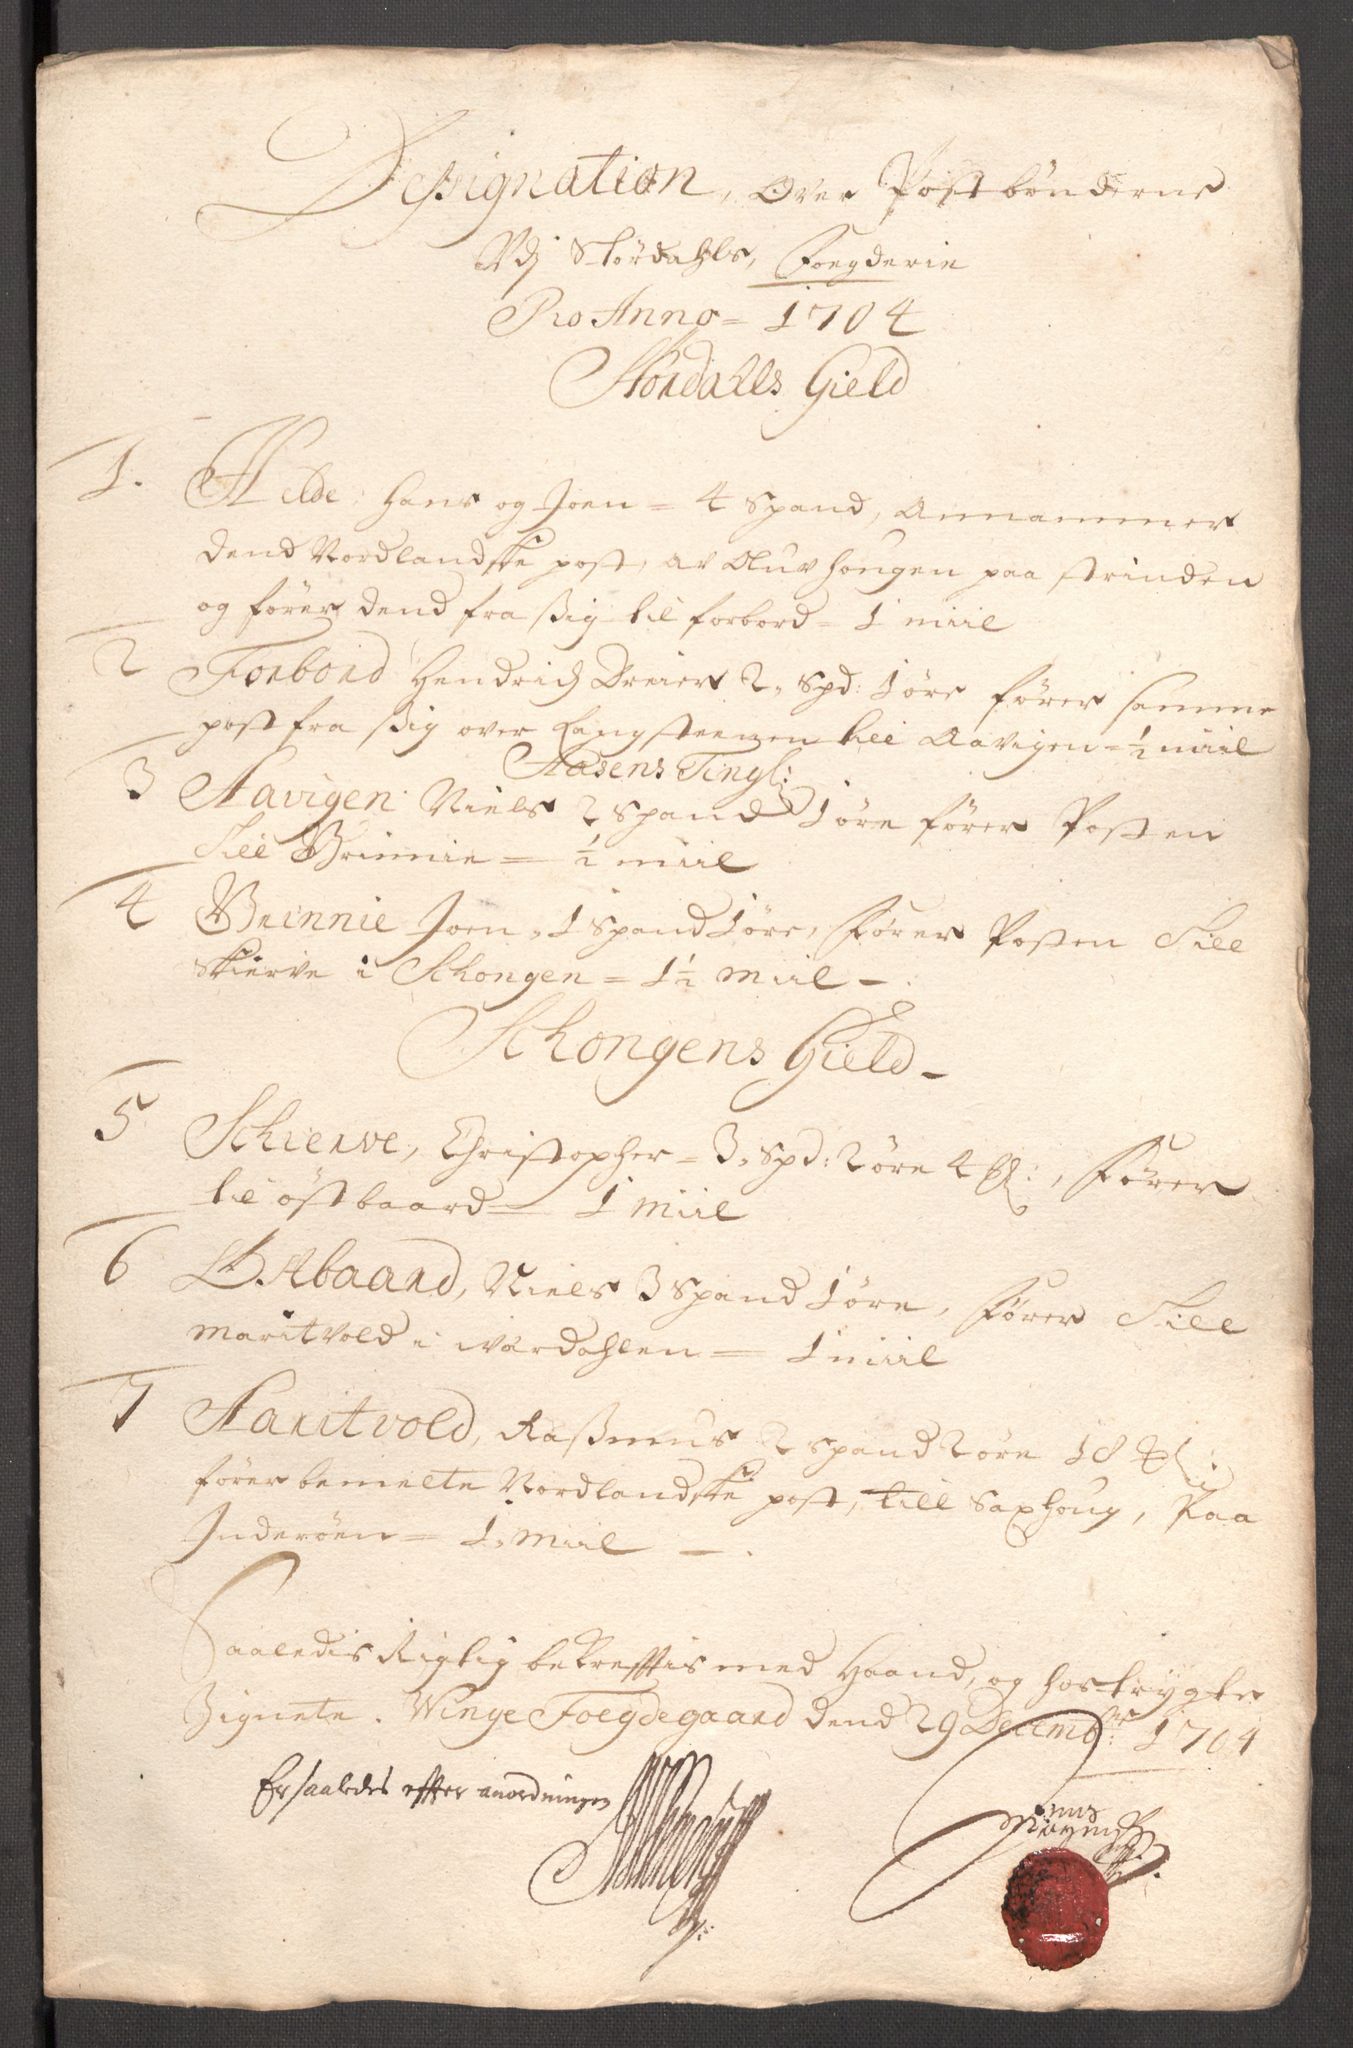 Designation, Over Postbønderne
Udj Størdahls, Foegderie
Pro Anno = 1704
Stordalls Gield
1. Helde: Hans og Joen = 4 Spand, Annammer
dend Nordlandske post, av Oluv Hougen paa strinden
og fører dend fra ßig til forbord = 1 miil
2 Forbord Hendrich Dreier 2, Spd: 1 øre fører samme
post fra ßig over Langsteenen till Aavigen = ½ miil
Aasens Tingl:
3 Aavigen Niels 2 Spand 1 øre fører Posten
Till Brinnie = ½ miil
4 Brinnie Joen, 1 Spand 1 øre, Fører Posten Till
Skierve i Schongen = 1½ Miil -.
Schongens Gield -
5 Schierve, Christopher = 3, Spd: 2 øre 4 ℔:, Fører
til østbaard = 1 Miil
6 Østbaard, Niels 3 Spand 1 øre, Fører Till
Maritvold i Værdahlen = 1 miil
7 Maritvold, Raßmus 2 Spand 2 øre 18 ℔:
fører bemelte Nordlandske post, till Saxhoug, Paa
Inderøen = 1, Miil -.
Saaledis Rigtig bekrefftis med Haand, og hostrygte
Zignete. Winge Foegdegaard dend 29 Decembr: 1704
Er saaledes effter anordningen